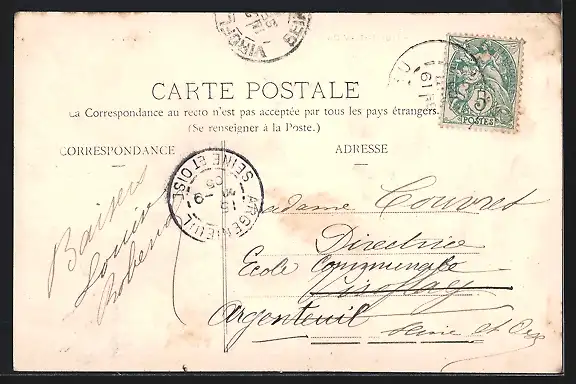 VIROFLAY
SEINE
CARTE POSTALE
La Correspondance au recto n'est pas acceptée par tous les pays étrangers.
(Se renseigner à la Poste.)
CORRESPONDANCE
ADRESSE
5
POSTES
ARGENTEUIL
SEINE ET OISE
Baisers
Louise
Madame Couvret
Directrice
Ecole Communale
Viroflay
Argenteuil
Seine et Oise